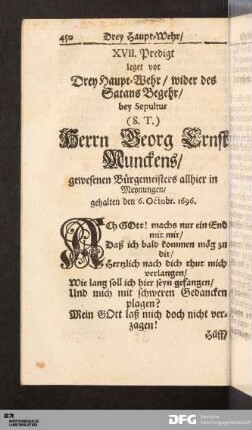 450 Drey Haupt-Wehr/
XVII. Predigt
leget vor
Drey Haupt-Wehr / wider des
Satans Begehr/
bey Sepultur
(S. T.)
Herrn Georg Ernst
Munckens/
gewesenen Bürgemeisters allhier in
Meynungen/
gehalten den 6. Octobr. 1696.
ACh GOtt! machs nur ein End
mit mir/
Daß ich bald kommen mög zu
dir/
Hertzlich nach dich thut mich
verlangen/
Wie lang soll ich hier seyn gefangen/
Und mich mit schweren Gedancken
plagen?
Mein GOtt laß mich doch nicht ver-
zagen!
Hülff
DFG Deutsche
Forschungsgemeinschaft